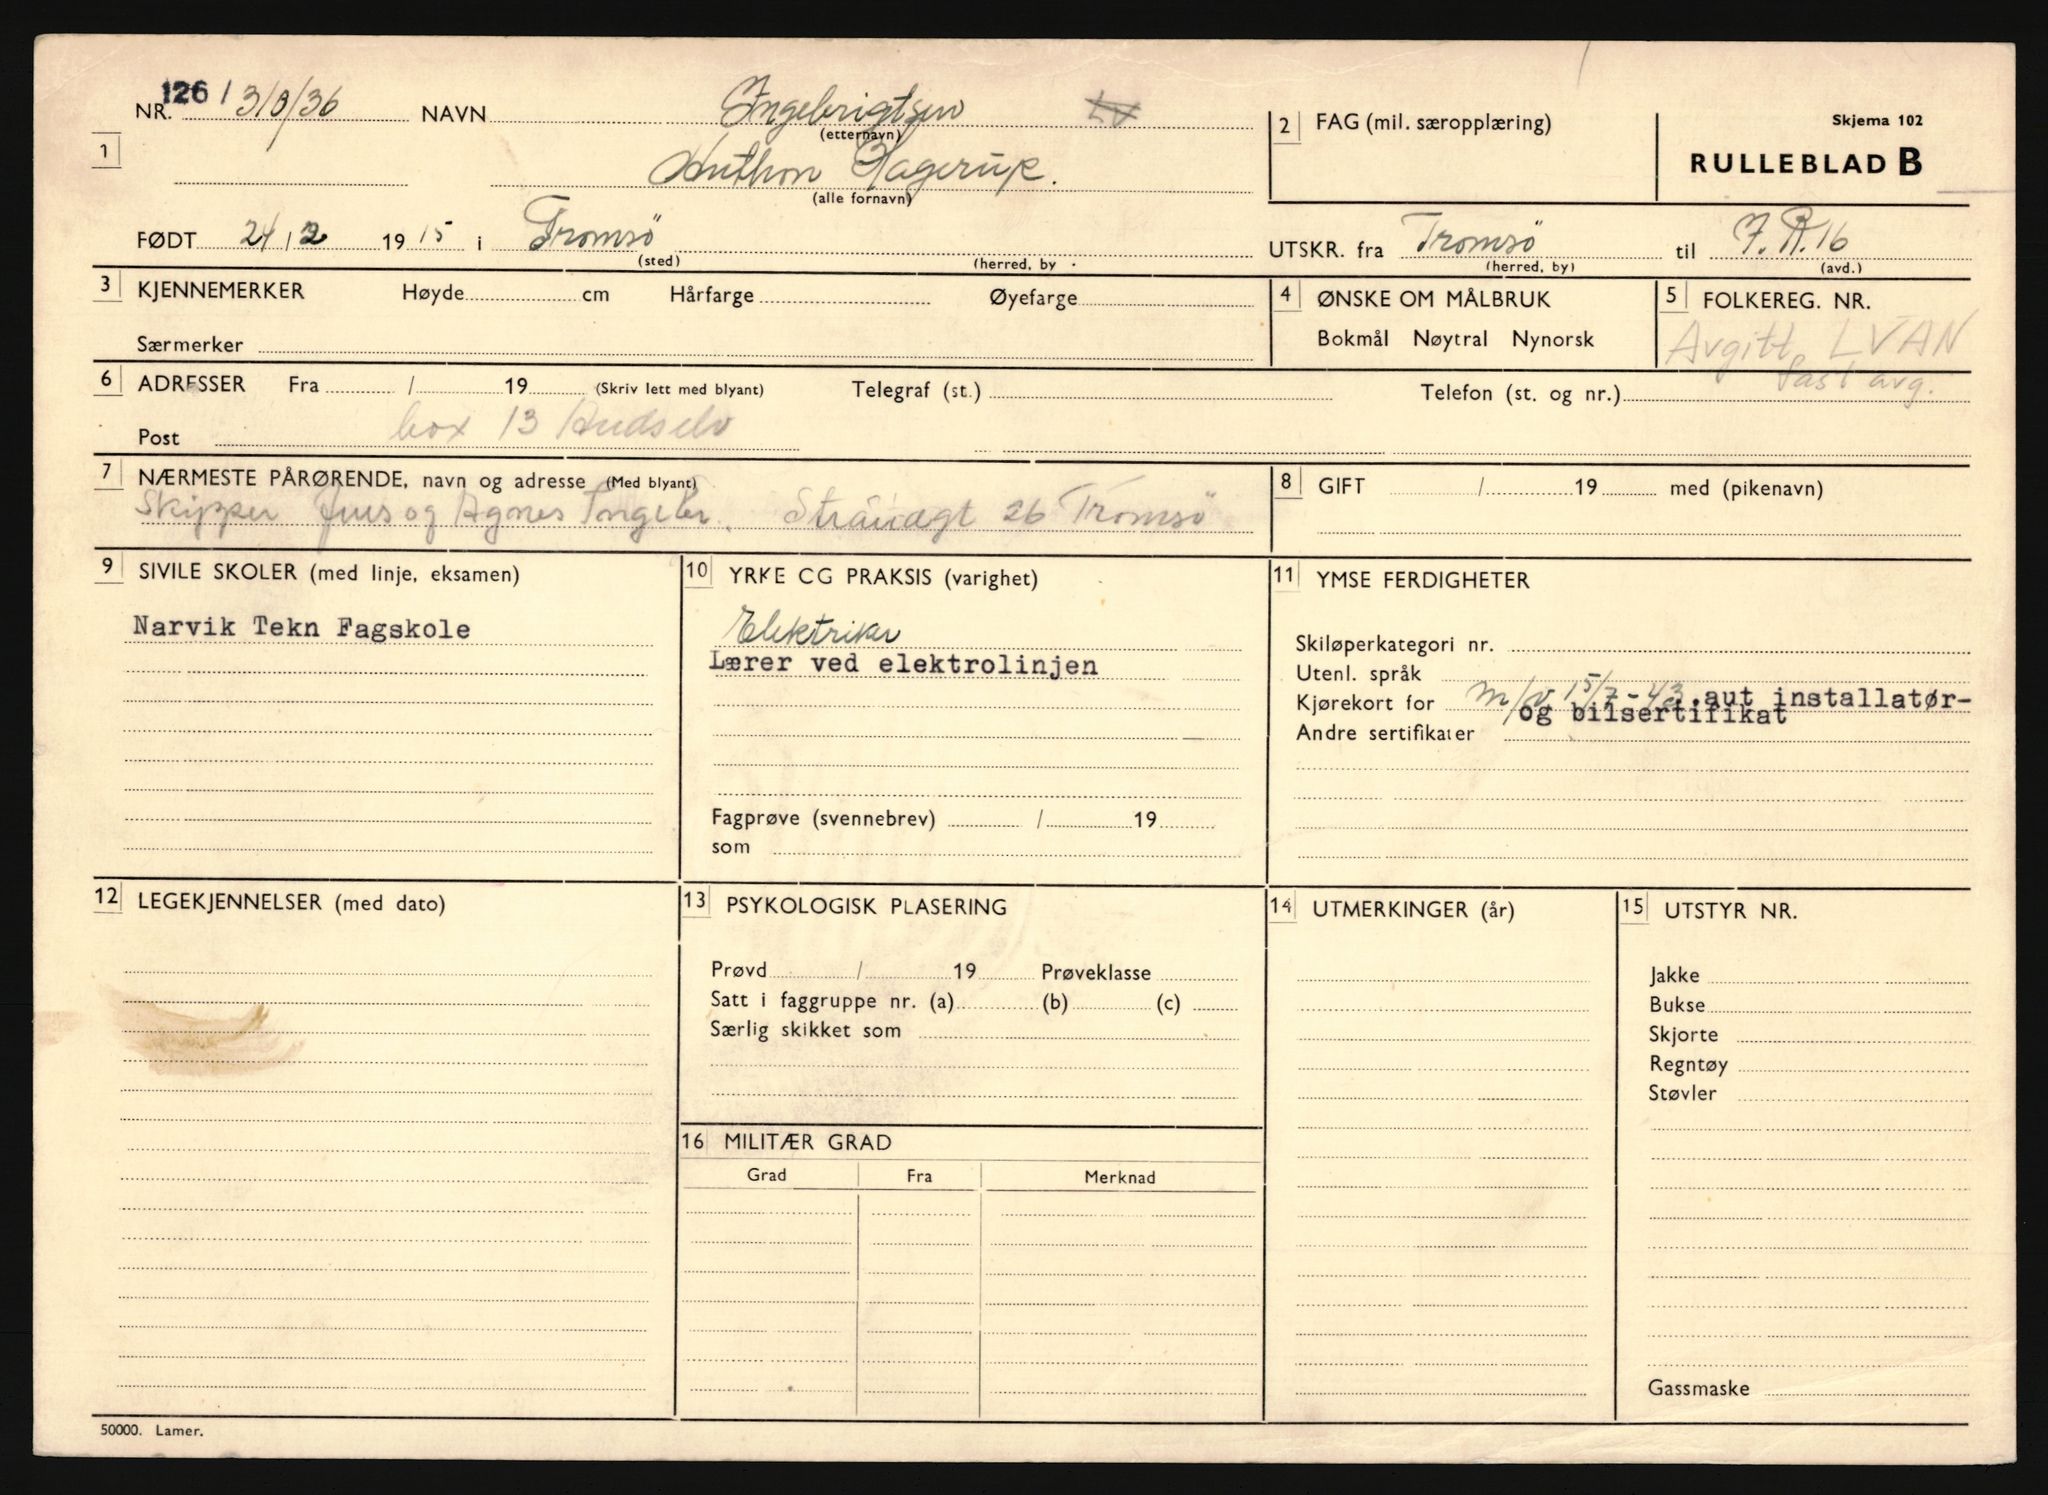 NR. 126 / 3/8/36 NAVN Ingebrigtsen
(etternavn)
1 Anthon Hagerup.
(alle fornavn)
FØDT 24/2 1915 i Tromsö
(sted) (herred, by
2 FAG (mil. særopplæring)
Skjema 102
RULLEBLAD B
UTSKR. fra Tromsö til I.R.16
(herred, by) (avd.)
3 KJENNEMERKER Høyde cm Hårfarge Øyefarge
Særmerker
4 ØNSKE OM MÅLBRUK
Bokmål Nøytral Nynorsk
5 FOLKEREG. NR.
Avgitt LVAN
fast avg.
6 ADRESSER Fra / 19 (Skriv lett med blyant) Telegraf (st.) Telefon (st. og nr.)
Post box 13 Andselv
7 NÆRMESTE PÅRØRENDE, navn og adresse (Med blyant)
Skipper Jens og Agnes Ingebr. 26 Tromsö
8 GIFT / 19 med (pikenavn)
9 SIVILE SKOLER (med linje, eksamen)
Narvik Tekn Fagskole
10 YRKE OG PRAKSIS (varighet)
Elektriker
Lærer ved elektrolinjen
Fagprøve (svennebrev) / 19
som
11 YMSE FERDIGHETER
Skiløperkategori nr.
Utenl. språk
Kjørekort for m/v 15/7-43. aut installatør-
og bilsertifikat
Andre sertifikater
12 LEGEKJENNELSER (med dato)
13 PSYKOLOGISK PLASERING
Prøvd / 19 Prøveklasse
Satt i faggruppe nr. (a) (b) (c)
Særlig skikket som
14 UTMERKINGER (år)
15 UTSTYR NR.
Jakke
Bukse
Skjorte
Regntøy
Støvler
Gassmaske
16 MILITÆR GRAD
Grad Fra Merknad
50000. Lamer.